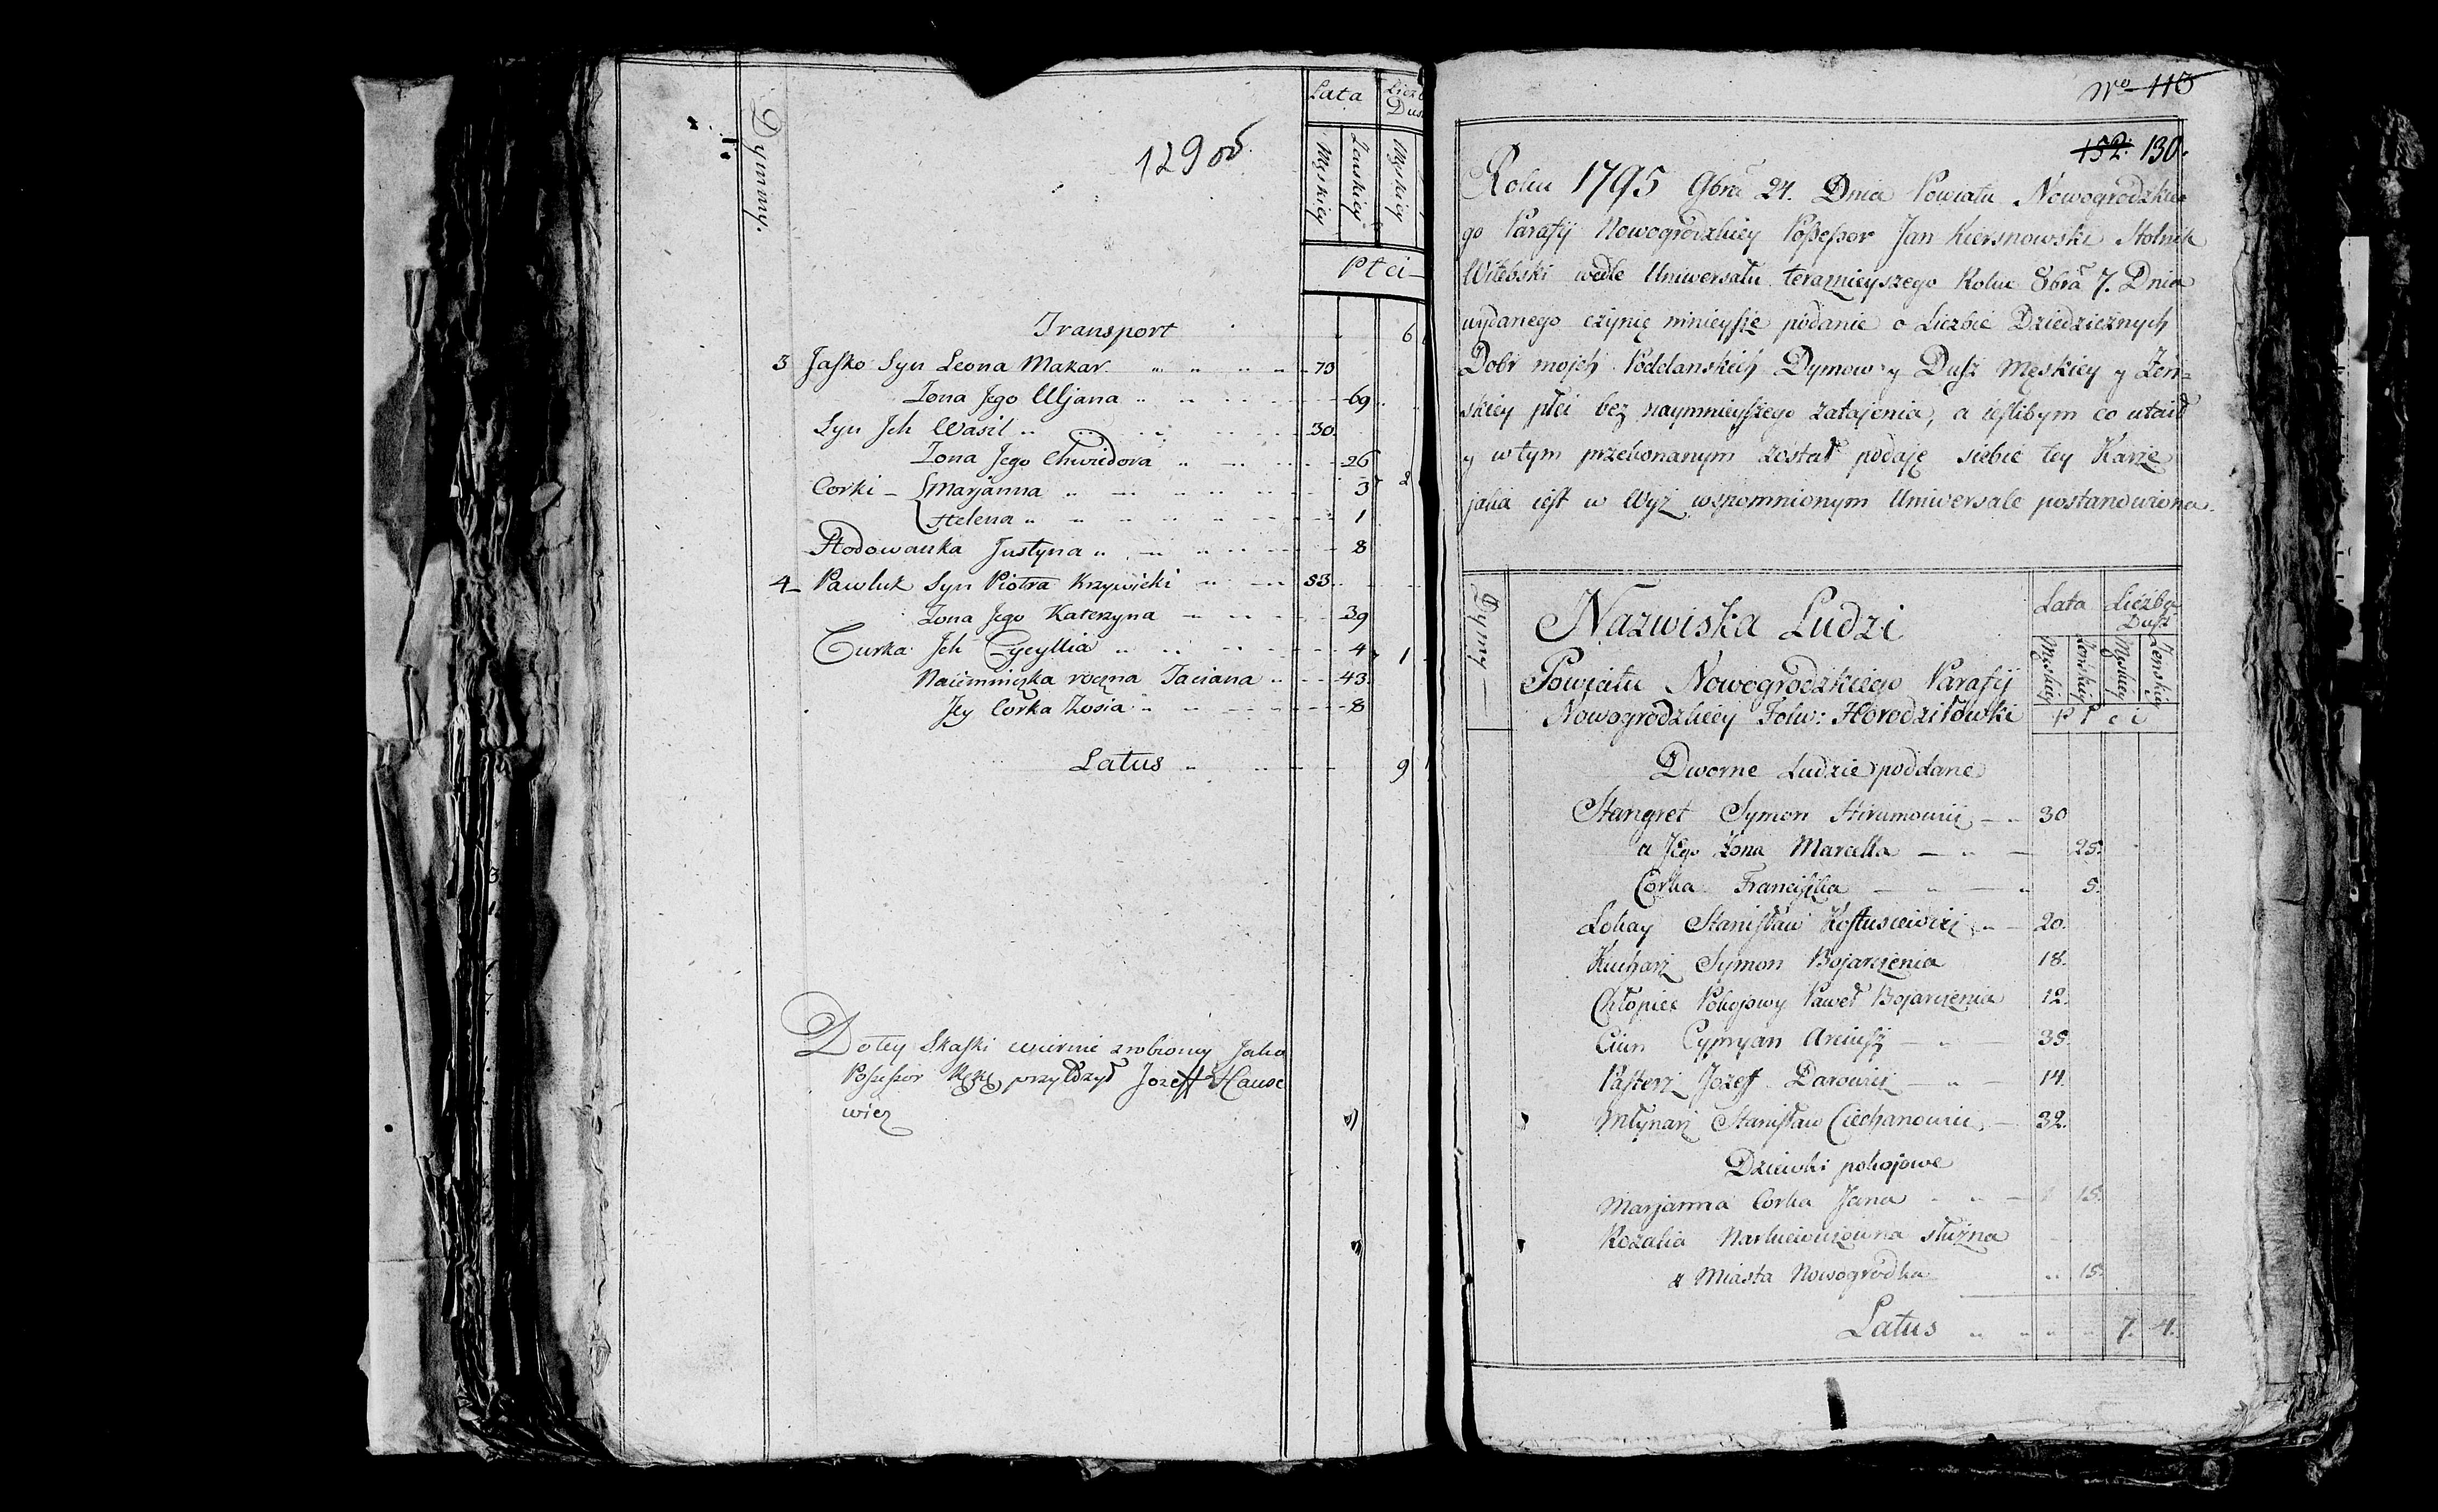 Dymmy.
129 об.
Lata Liczb
Dus
Męskiey Żenskiey Męskiey
Płci
Transport 6
3 Jaſko Syn Leona Makar 73
Żona Jego Uljana 69
Syn Jch Wasil 30
Żona Jego Chwiedora 26
Corki Marjanna 3 2
Helena 1
Hodowanka Justyna 8
4 Pawluk Syn Piotra Krzywicki 53
Żona Jego Katerzyna 39
Curka Jch Cycyllia 4 1
Naiemniczka roczna Taciana 43
Jey Córka Zosia 8
Latus 9
Do tey Skaſki wiernie zrobioney Jako
Poſseſsor Rękę przyłożył Jozeff
wicz
No 113
152. 130.
Roku 1795 9bra 24. Dnia Powiatu Nowogrodzkie=
go Parafij Nowogrodzkiey Poſseſsor Jan Kiersnowski Stolnik
Witebski wedle Uniwersału teraznieyszego Roku 8bra 7. Dnia
wydanego czynię ninieyſze podanie o Liczbie Dziedzicznych
Dobr mojch Poddanskich Dymow y Duſz Męskiey y Żeń=
skiey płci bez naymnieyſzego zatajenia, a ieſlibym co utaił
y w tym przekonanym został podaję siebie tey Karze
jaka ieſt w Wyż wspomnionym Uniwersale postanowiona.
Dymy
Nazwiska Ludzi
Lata Liczba
Duſz
Męskiey Żeńskiey Męskiey Żenskiey
Powiatu Nowogrodzkiego Parafij
Nowogrodzkiey Folw: Horodziłowki
Płci
Dworne Ludzie poddane
Stangret Symon 30
a Jego Żona Marcella 25.
Corka Franciſzka 5.
Lokay Staniſław Koſtusiewicz 20.
Kucharz Symon Bojarczenia 18.
Chłopiec Pokojowy Paweł Bojarczenia 12.
Ciun Cypryan Arciuſz 35.
Paſterz Jozef Darowicz 14.
Młynarz Staniſław Ciechanowicz 32.
Dziewki pokojowe
Marjanna Corka Jana 15.
Rozalia Narkiewiczowna służna
z Miasta Nowogródka 15.
Latus 7. 4.